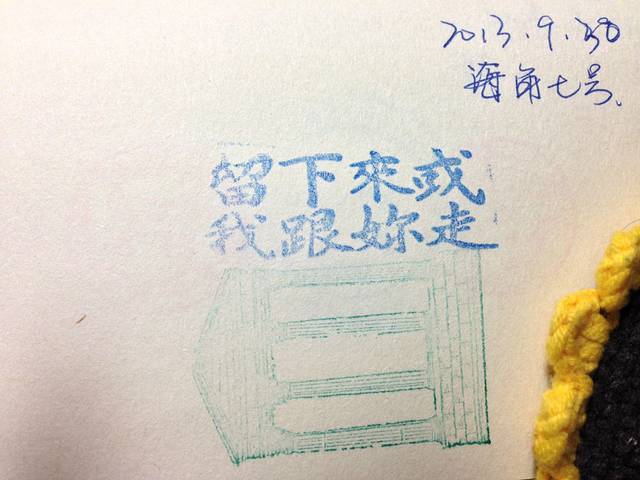 2013.9.30
海角七号
留下來或
我跟妳走